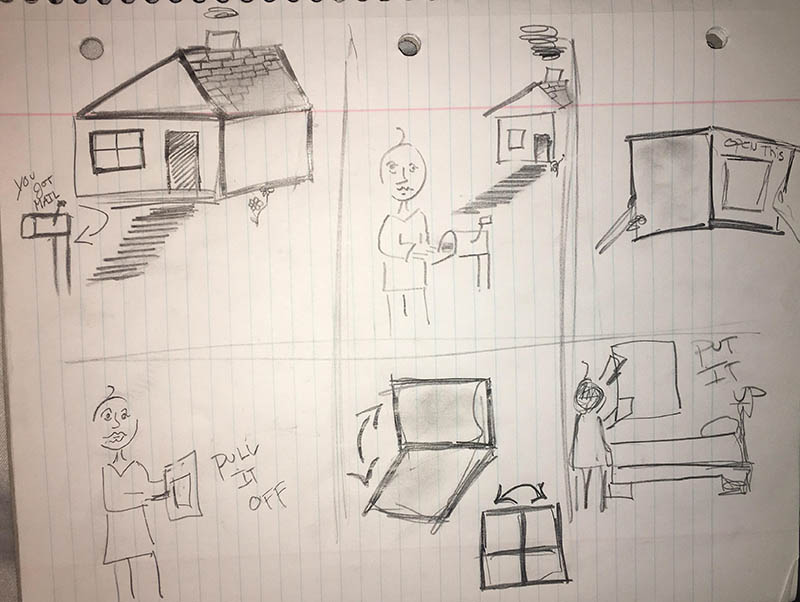 YOU
GOT
MAIL
OPEN THIS
PULL
IT
OFF
PUT
IT